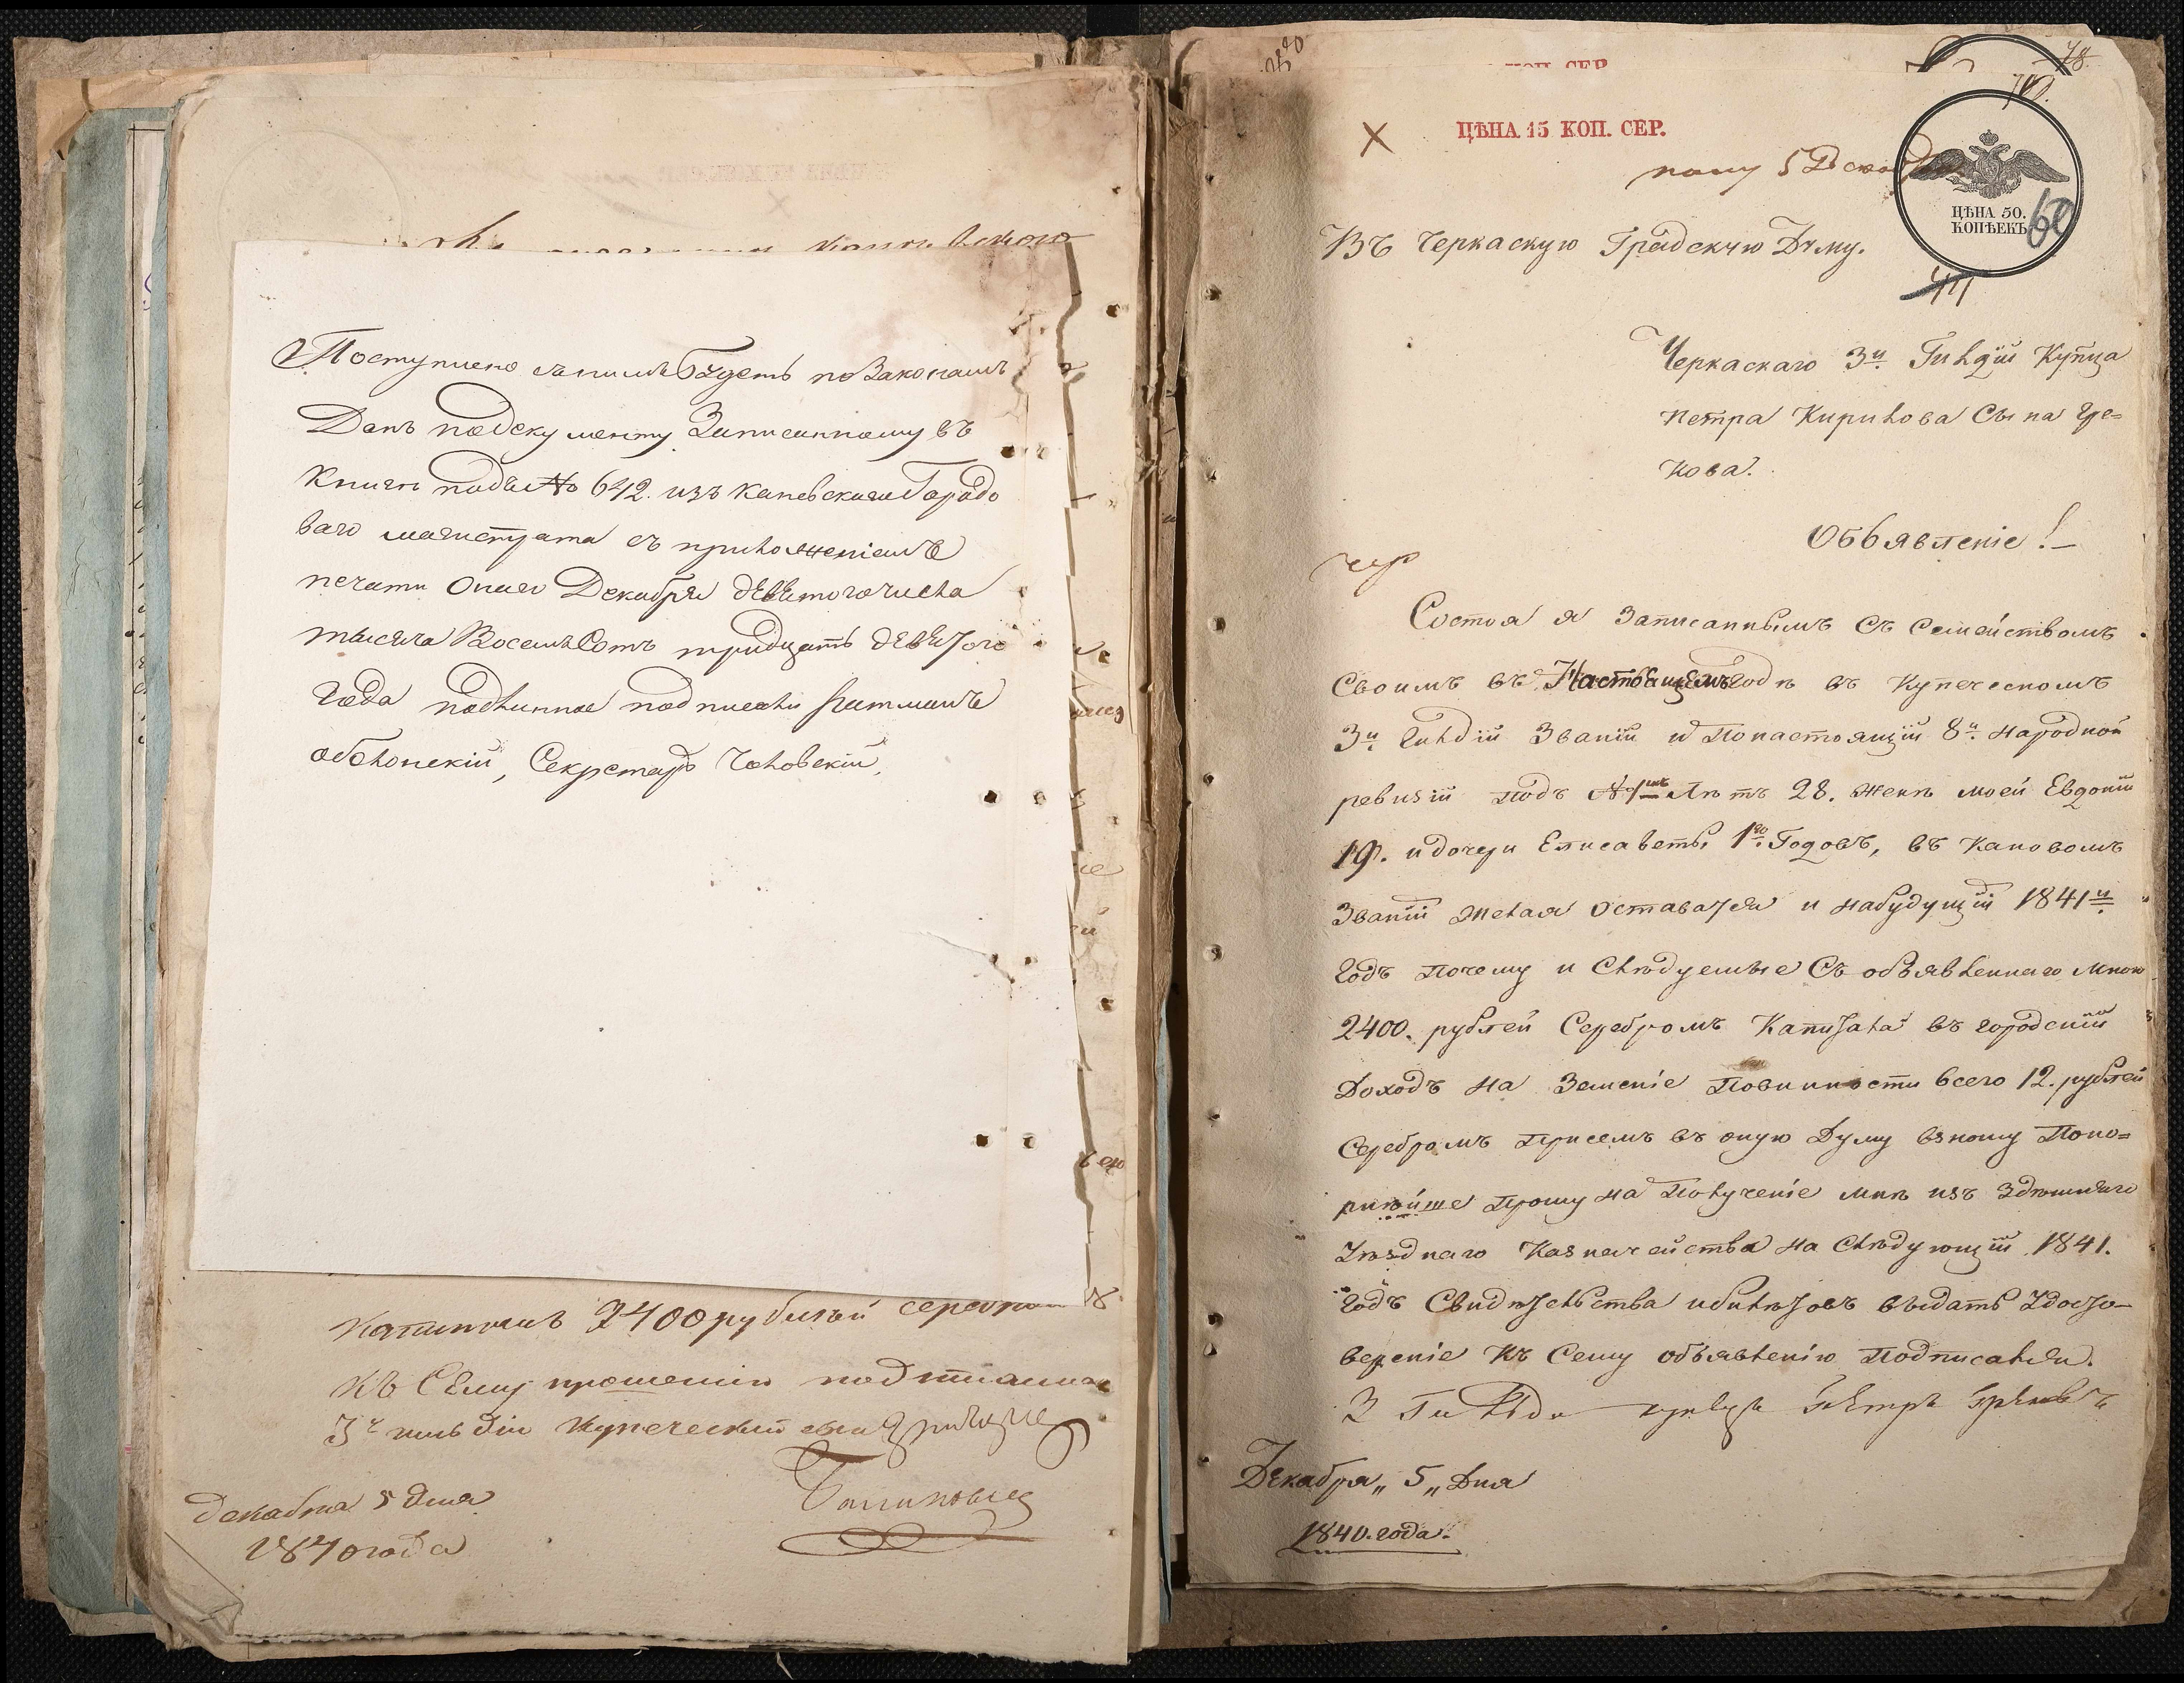 Поступлено съ нимъ будетъ по Законамъ
Данъ по документу Записанному въ
книгѣ подъ № 642. изъ каневскаго Городо
ваго магистрата съ приложеніемъ
печати онаго Декабря девятого числа
тысяча Восемъ Сотъ тридцать девятого
года подлинное подписали
Оболонскій, Секретарь
2400 рублей
къ Сему прошению
3й гильдіи купеческий сынъ
декабря 5 дня
1840 года
78.
ЦѢНА 15 КОП. СЕР.
5 Декабря
ЦѢНА 50.
КОПѢЕКЪ
60
Въ Черкаскую Градскую Думу.
Черкаскаго 3й Гильдіи Купца
Петра Кирилова Сына Гре=
кова.
Объявленіе!—
Состоя я Записаннымъ Съ Семействомъ
Своимъ въ Настоящемъ Годѣ въ Купеческомъ
3й Гильдіи Званіи и По настоящій 8й народной
ревизіи подъ Лѣтъ 28. женѣ моей Евдокіи
19. и дочери Елисаветы 1го Годовъ, въ каковомъ
Званіи желая Оставатся и на будущій 1841й
Годъ Почему и Слѣдуемые Съ объявленнаго мною
2400. рублей Серебромъ Капитала въ городскій
Доходъ на Земскіе Повинности всего 12. рублей
Серебромъ При семъ въ оную Думу взношу Поко=
рнѣйше Прошу на Полученіе мнѣ изъ Здѣшняго
Уѣзднаго Казначейства на Слѣдующій 1841.
Годъ Свидѣтельства и билѣтовъ выдать Удосто-
вереніе Къ Сему объявленію Подписался.
3 Гильди купецъ Петръ Грековъ
Декабря„ 5 „Дня
1840. года.